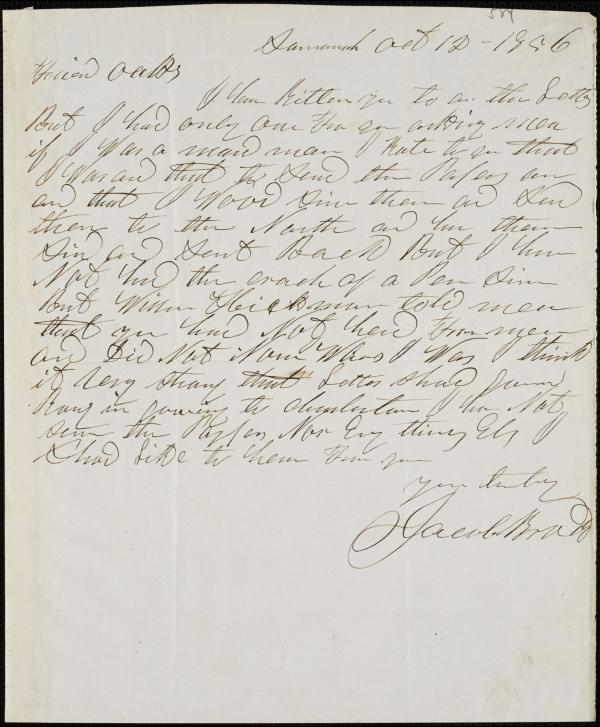 584
Savannah Oct 12 - 1856
Friend Oaks
I have Ritten you to or three Letters
But I had only one from you asking mea
if I Was a maried man I Rote to you that
I Was and that to Send the Papers on
and that I Wood Sine them and Send
them to the North and have them
Sind and Sent Back But I have
Not had the crach of a Pen Sine
But Wilson Heickman told mea
that you had Not herd from mea
and Did Not Know Whare I Was I think
it Very strang that Letters shod
Rong in to charlestown I have Not
seen the Papers Nor Eny thing Els I
Shod Like to hear from you
your truly
Jacob